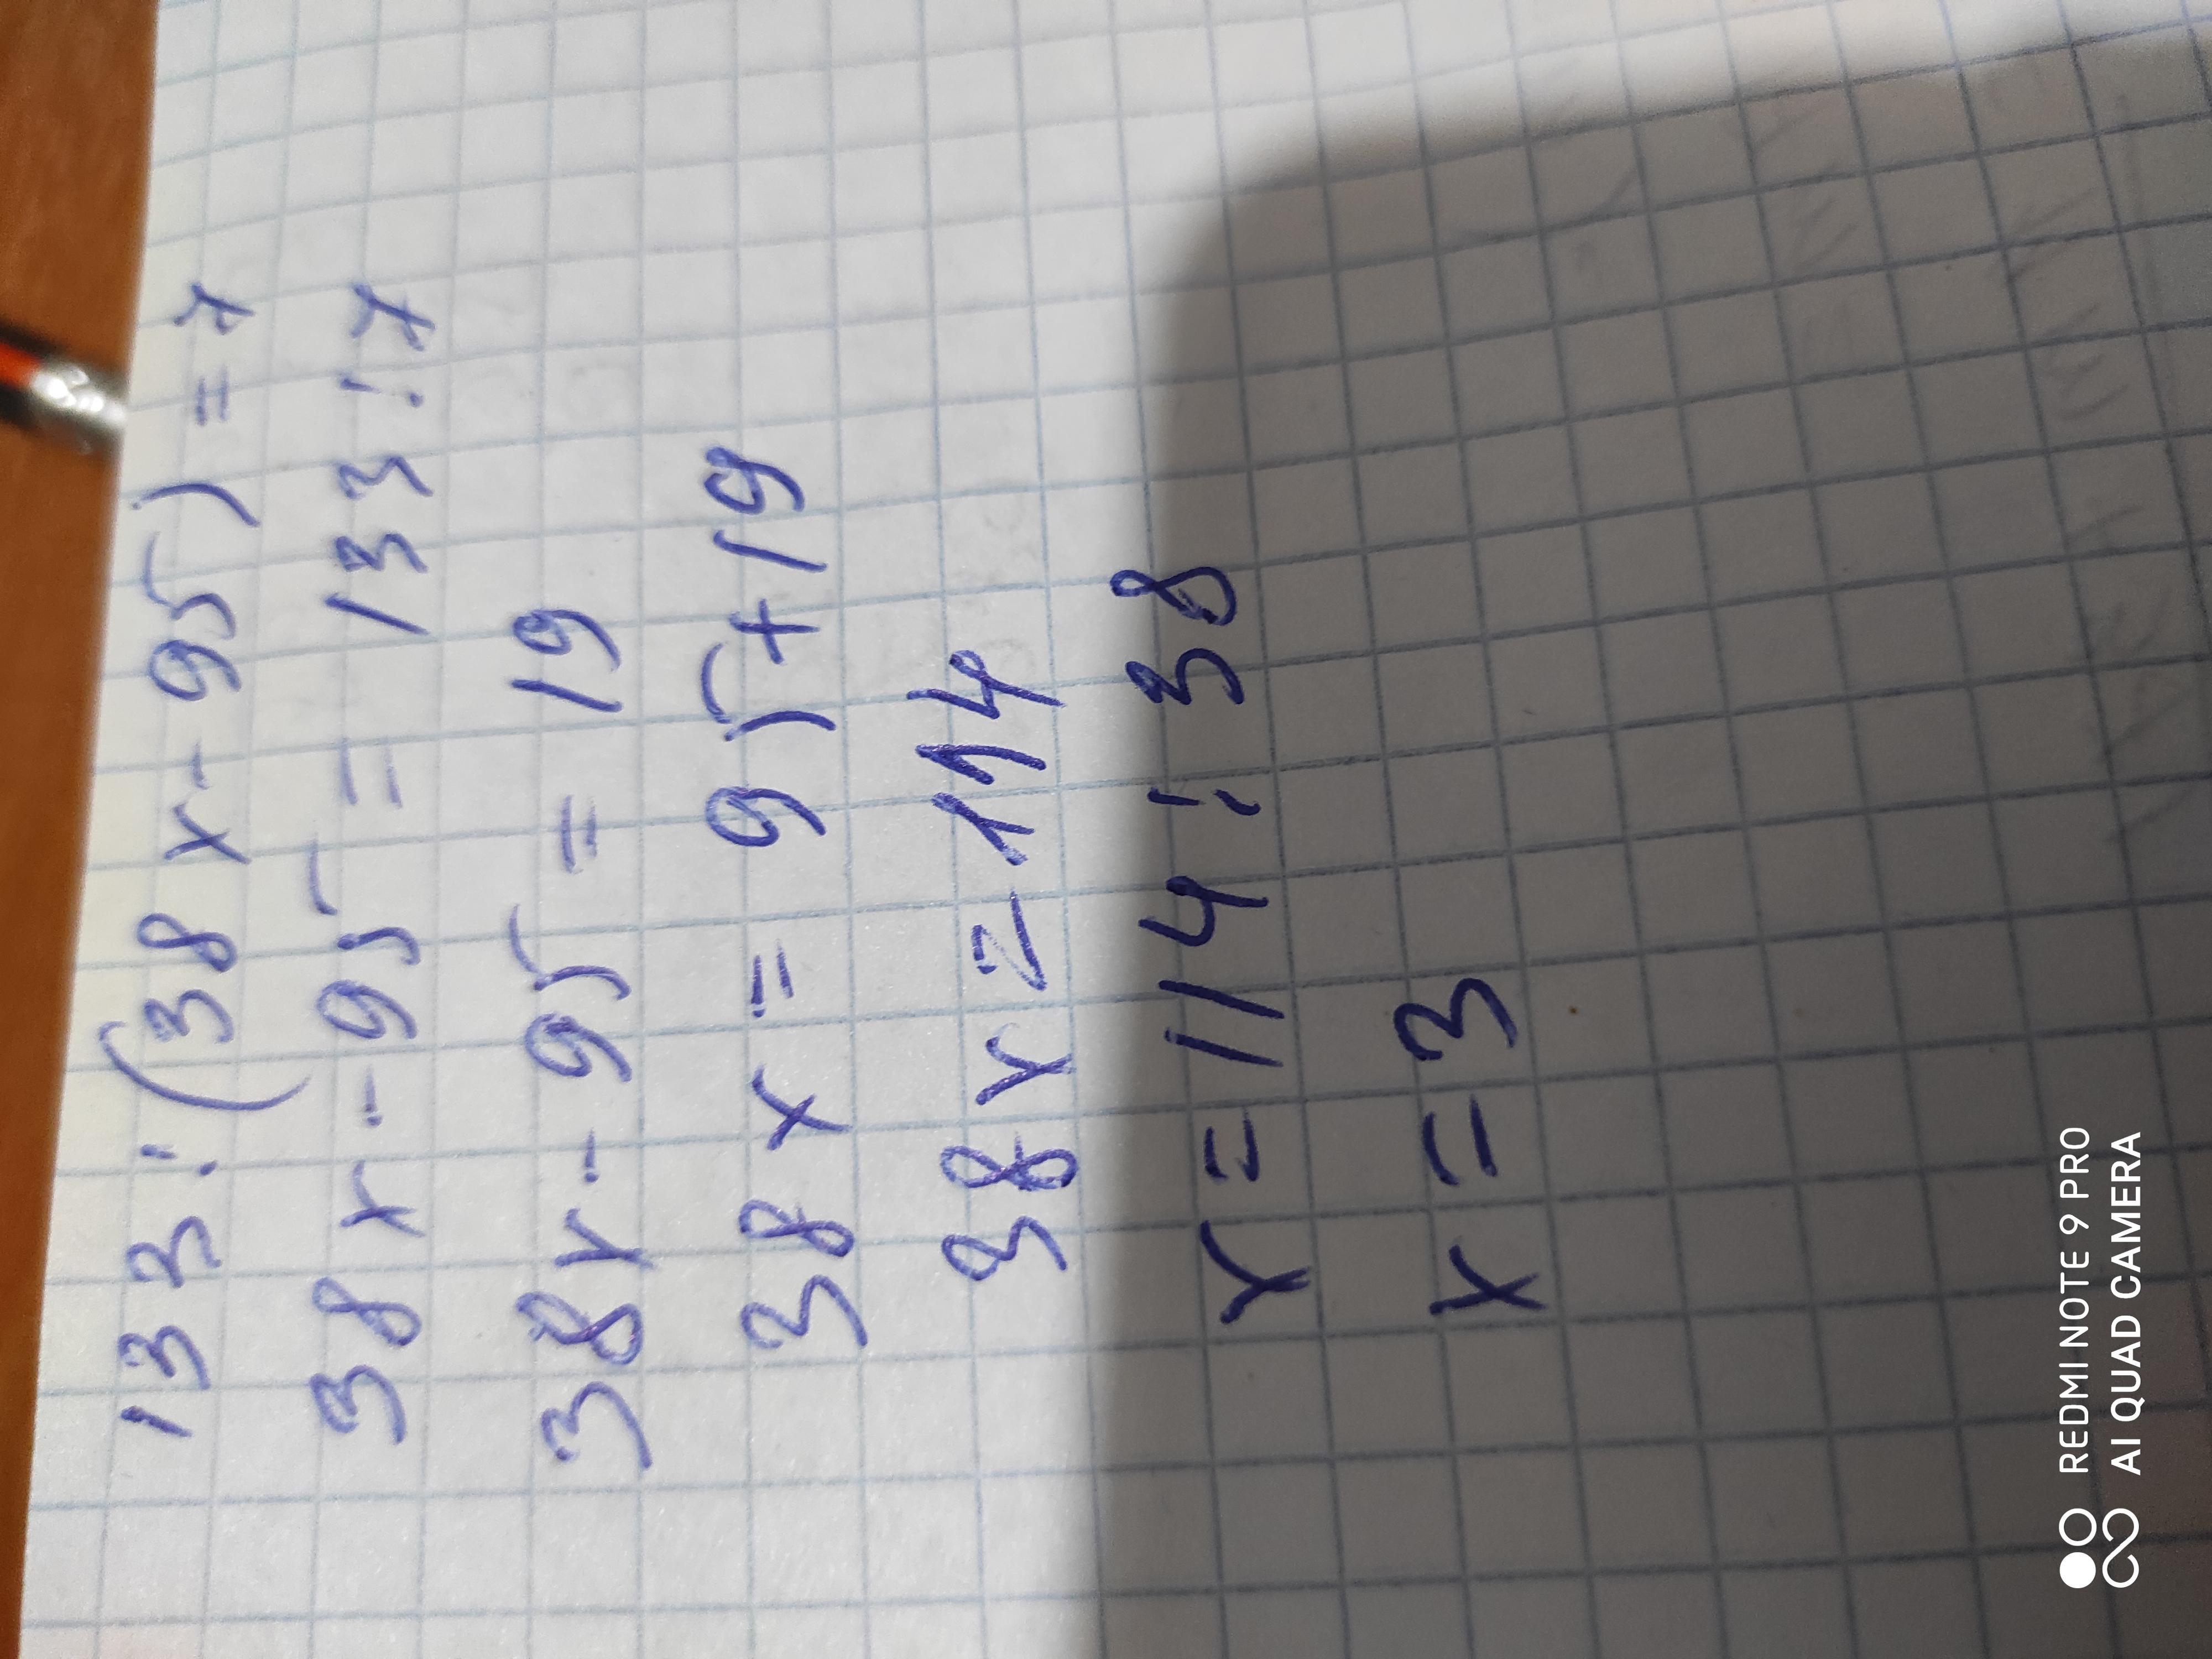 133:(38x-95)=7
38x-95=133:7
38x-95=19
38x=95+19
38x=114
x=114:38
x=3
REDMI NOTE 9 PRO
AI QUAD CAMERA